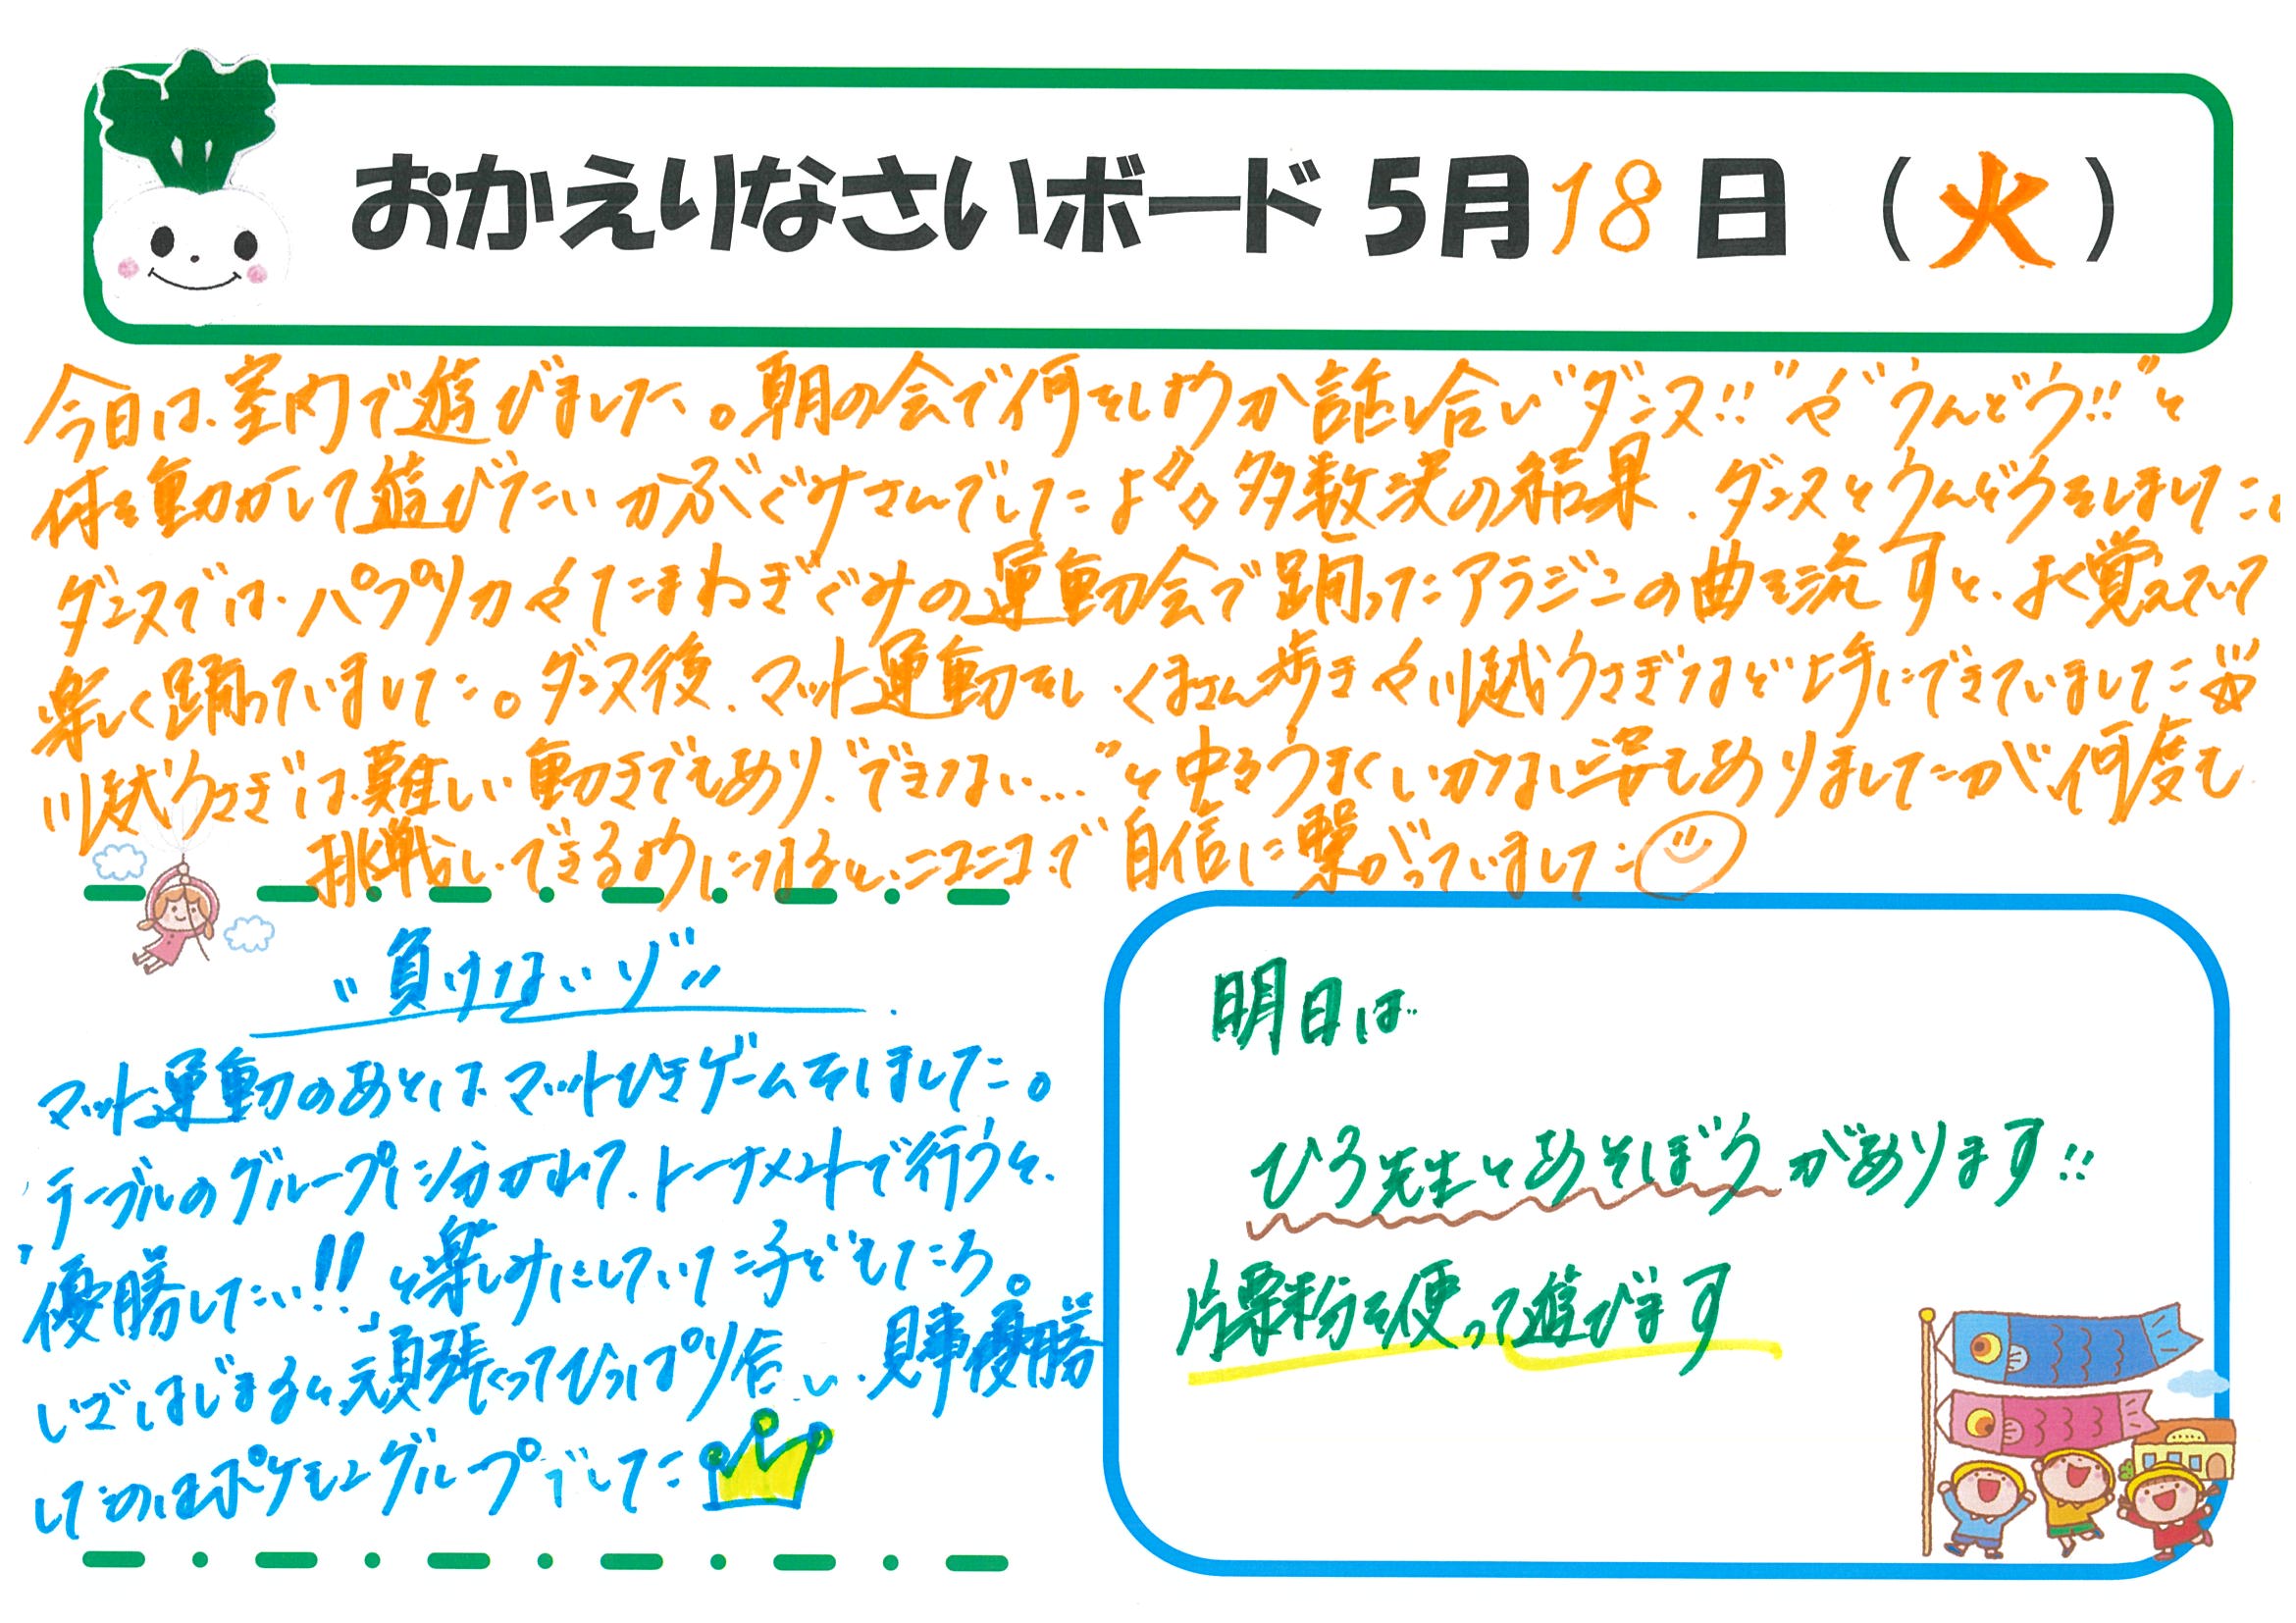 おかえりなさいボード 5月18日（火）
今日は、室内で遊びました。朝の会で何をしようか話し合い"ダンス!!"や"うんどう!!"と
体を動かして遊びたいかぶぐみさんでしたよ。多数決の結果、ダンスとうんどうをしました
ダンスでは、パプリカやたまねぎぐみの運動会で踊ったアラジンの曲を流すと、よく覚えていて
楽しく踊っていました。ダンス後、マット運動をし、くまさん歩きや川越うさぎなど上手にできていました
川越うさぎは、難しい動きでもあり、"できない…"と中々うまくいかない姿もありましたが、何度も
挑戦し、できるようになると、ニコニコで自信に繋がっていました
"負けないゾ"
マット運動のあとは、マットひきゲームをしました。
テーブルのグループに分かれて、トーナメントで行うと、
「優勝したい!!」と楽しみにしていた子どもたち。
いざはじまると、頑張ってひっぱり合い、見事優勝
したのはポケモングループでした
明日は
ひろ先生とあそぼうがあります!!
片栗粉を使って遊びます